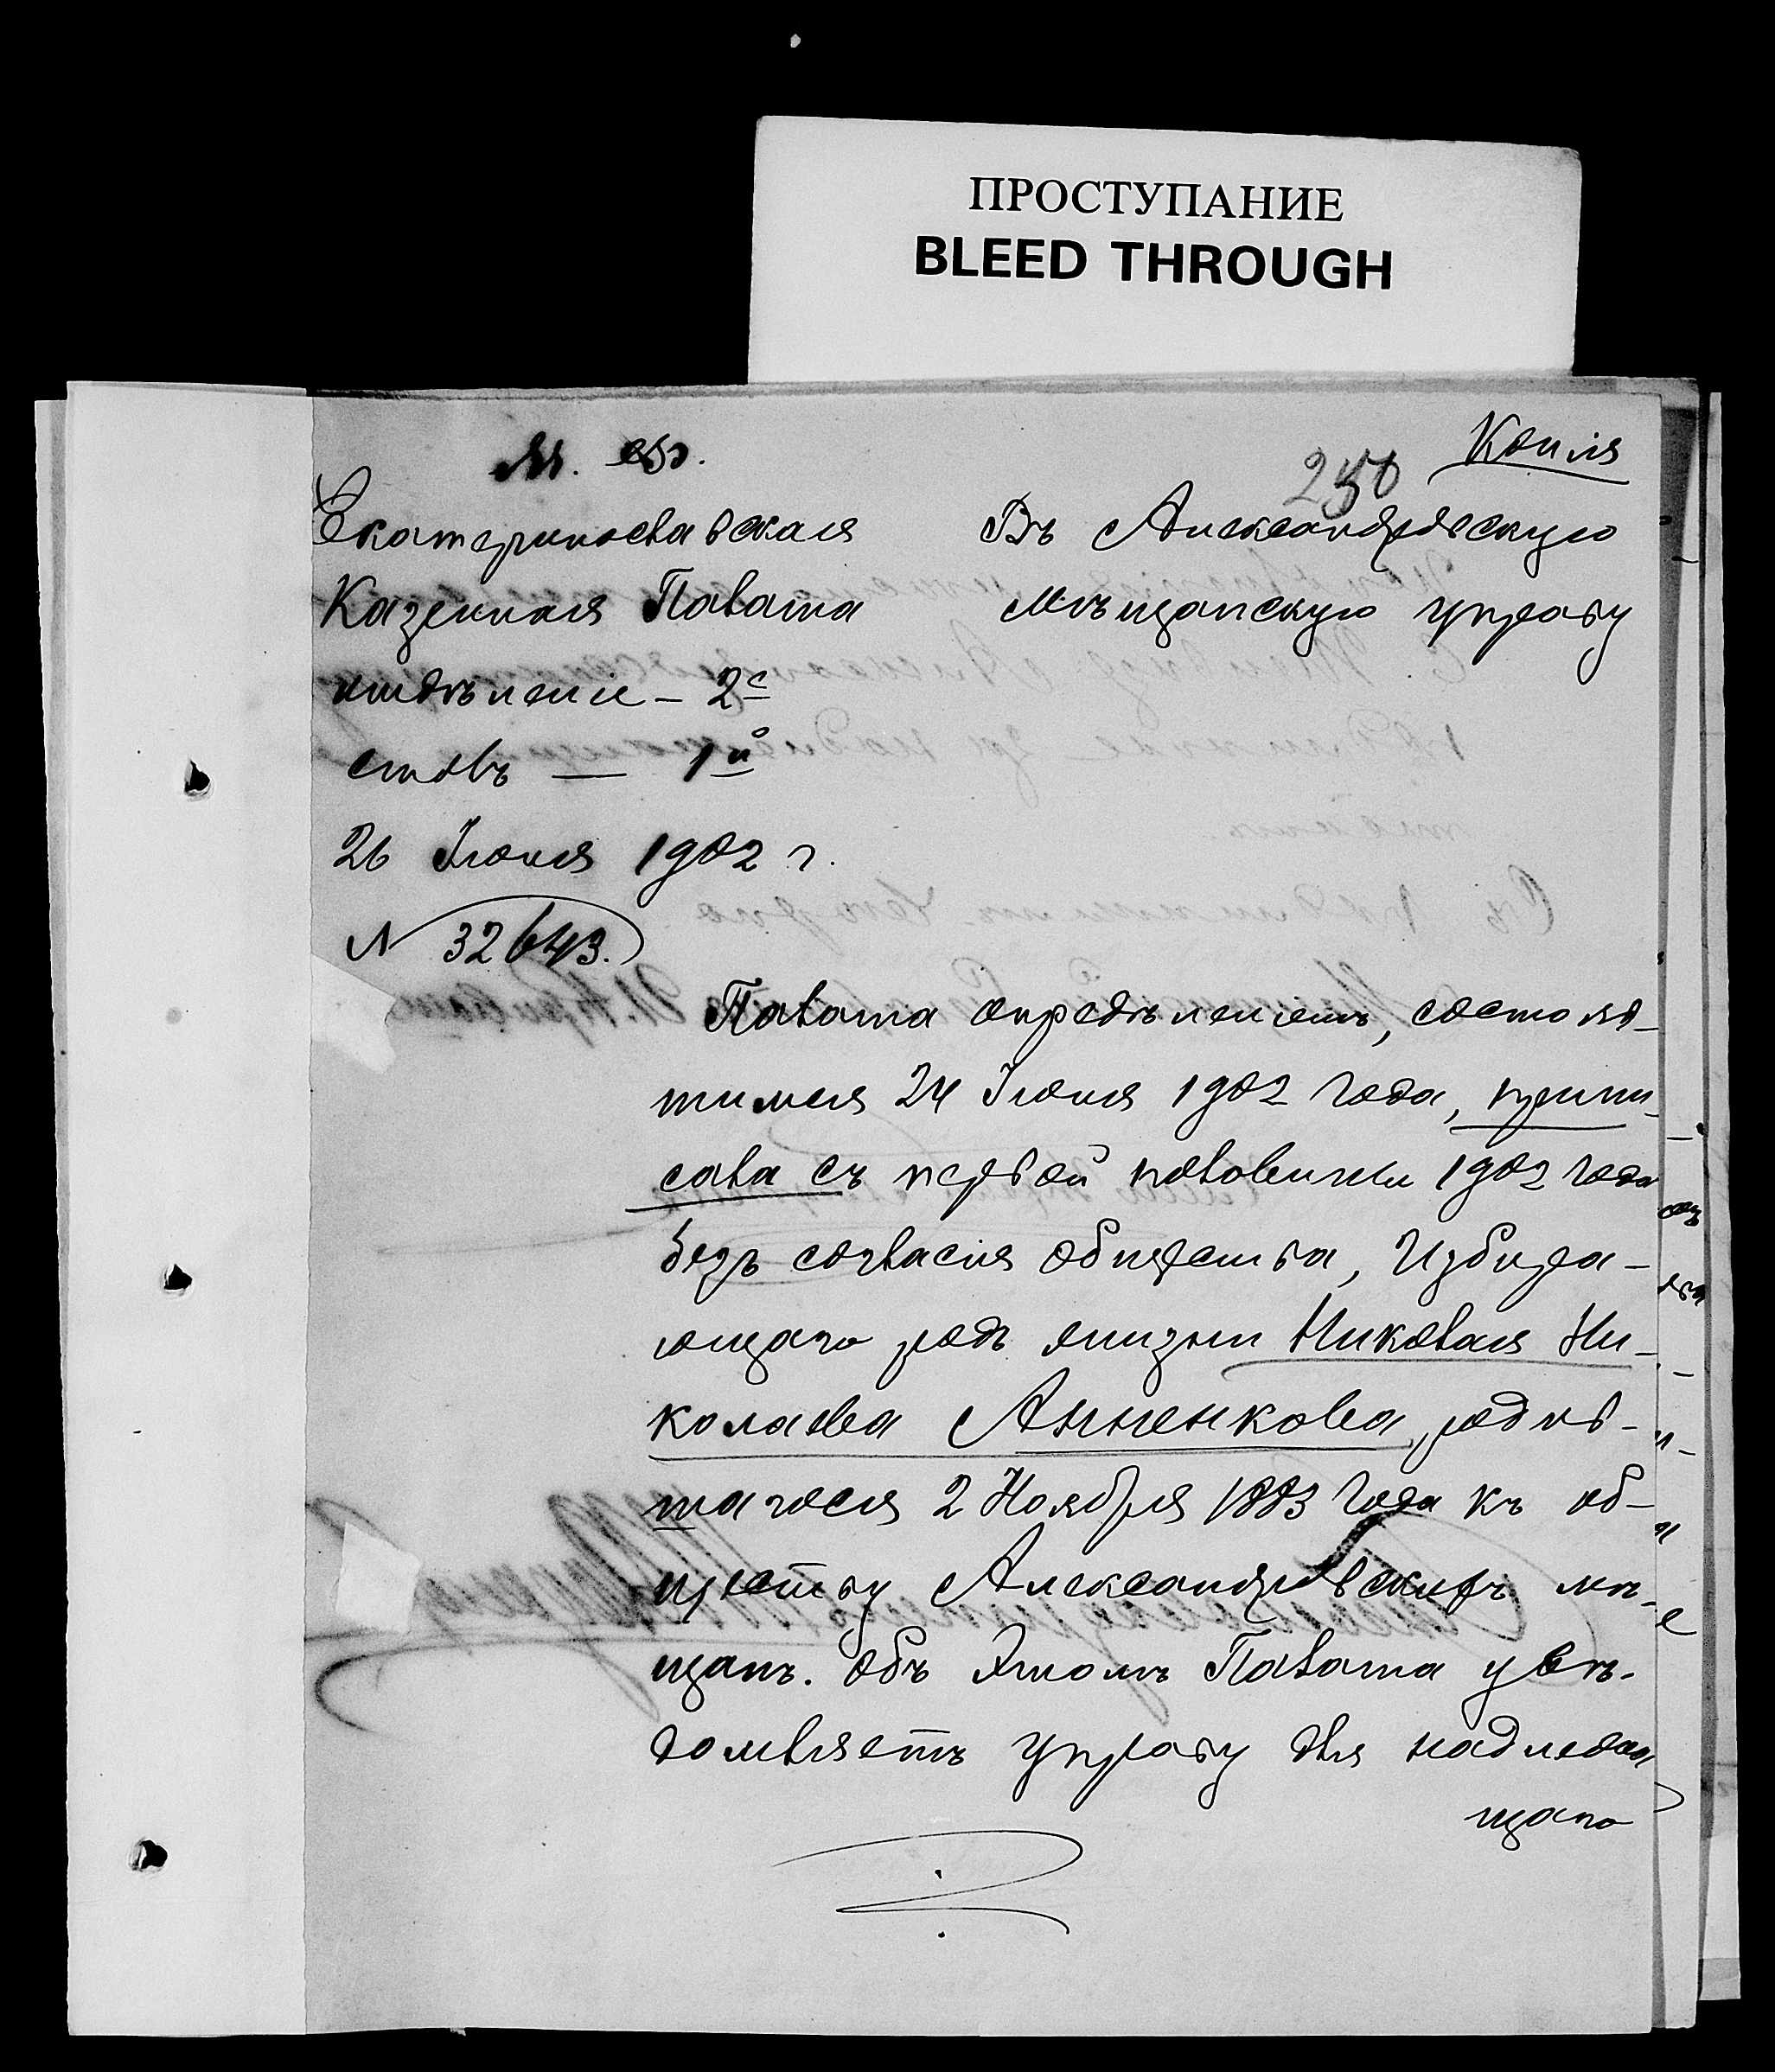 ПРОСТУПАНИЕ
BLEED THROUGH
Копія
250
М. Ф.
Екатеринославская
Казенная Палата
отдѣленіе – 2е
столъ — 1й
26 Іюня 1902 г.
N 32643.
Въ Александровскую
мѣщанскую управу
Палата опредѣленіемъ, состояв-
шимся 24 Іюня 1902 года, припи-
сала съ первой половины 1902 года
безъ согласія общества, избира-
ющаго родъ жизни Николая Ни-
колаева Анненкова, родив-
шагося 2 Ноября 1883 года къ об-
ществу Александровскихъ мѣ-
щанъ. Объ этомъ Палата увѣ-
домляетъ управу для надлежа
щаго